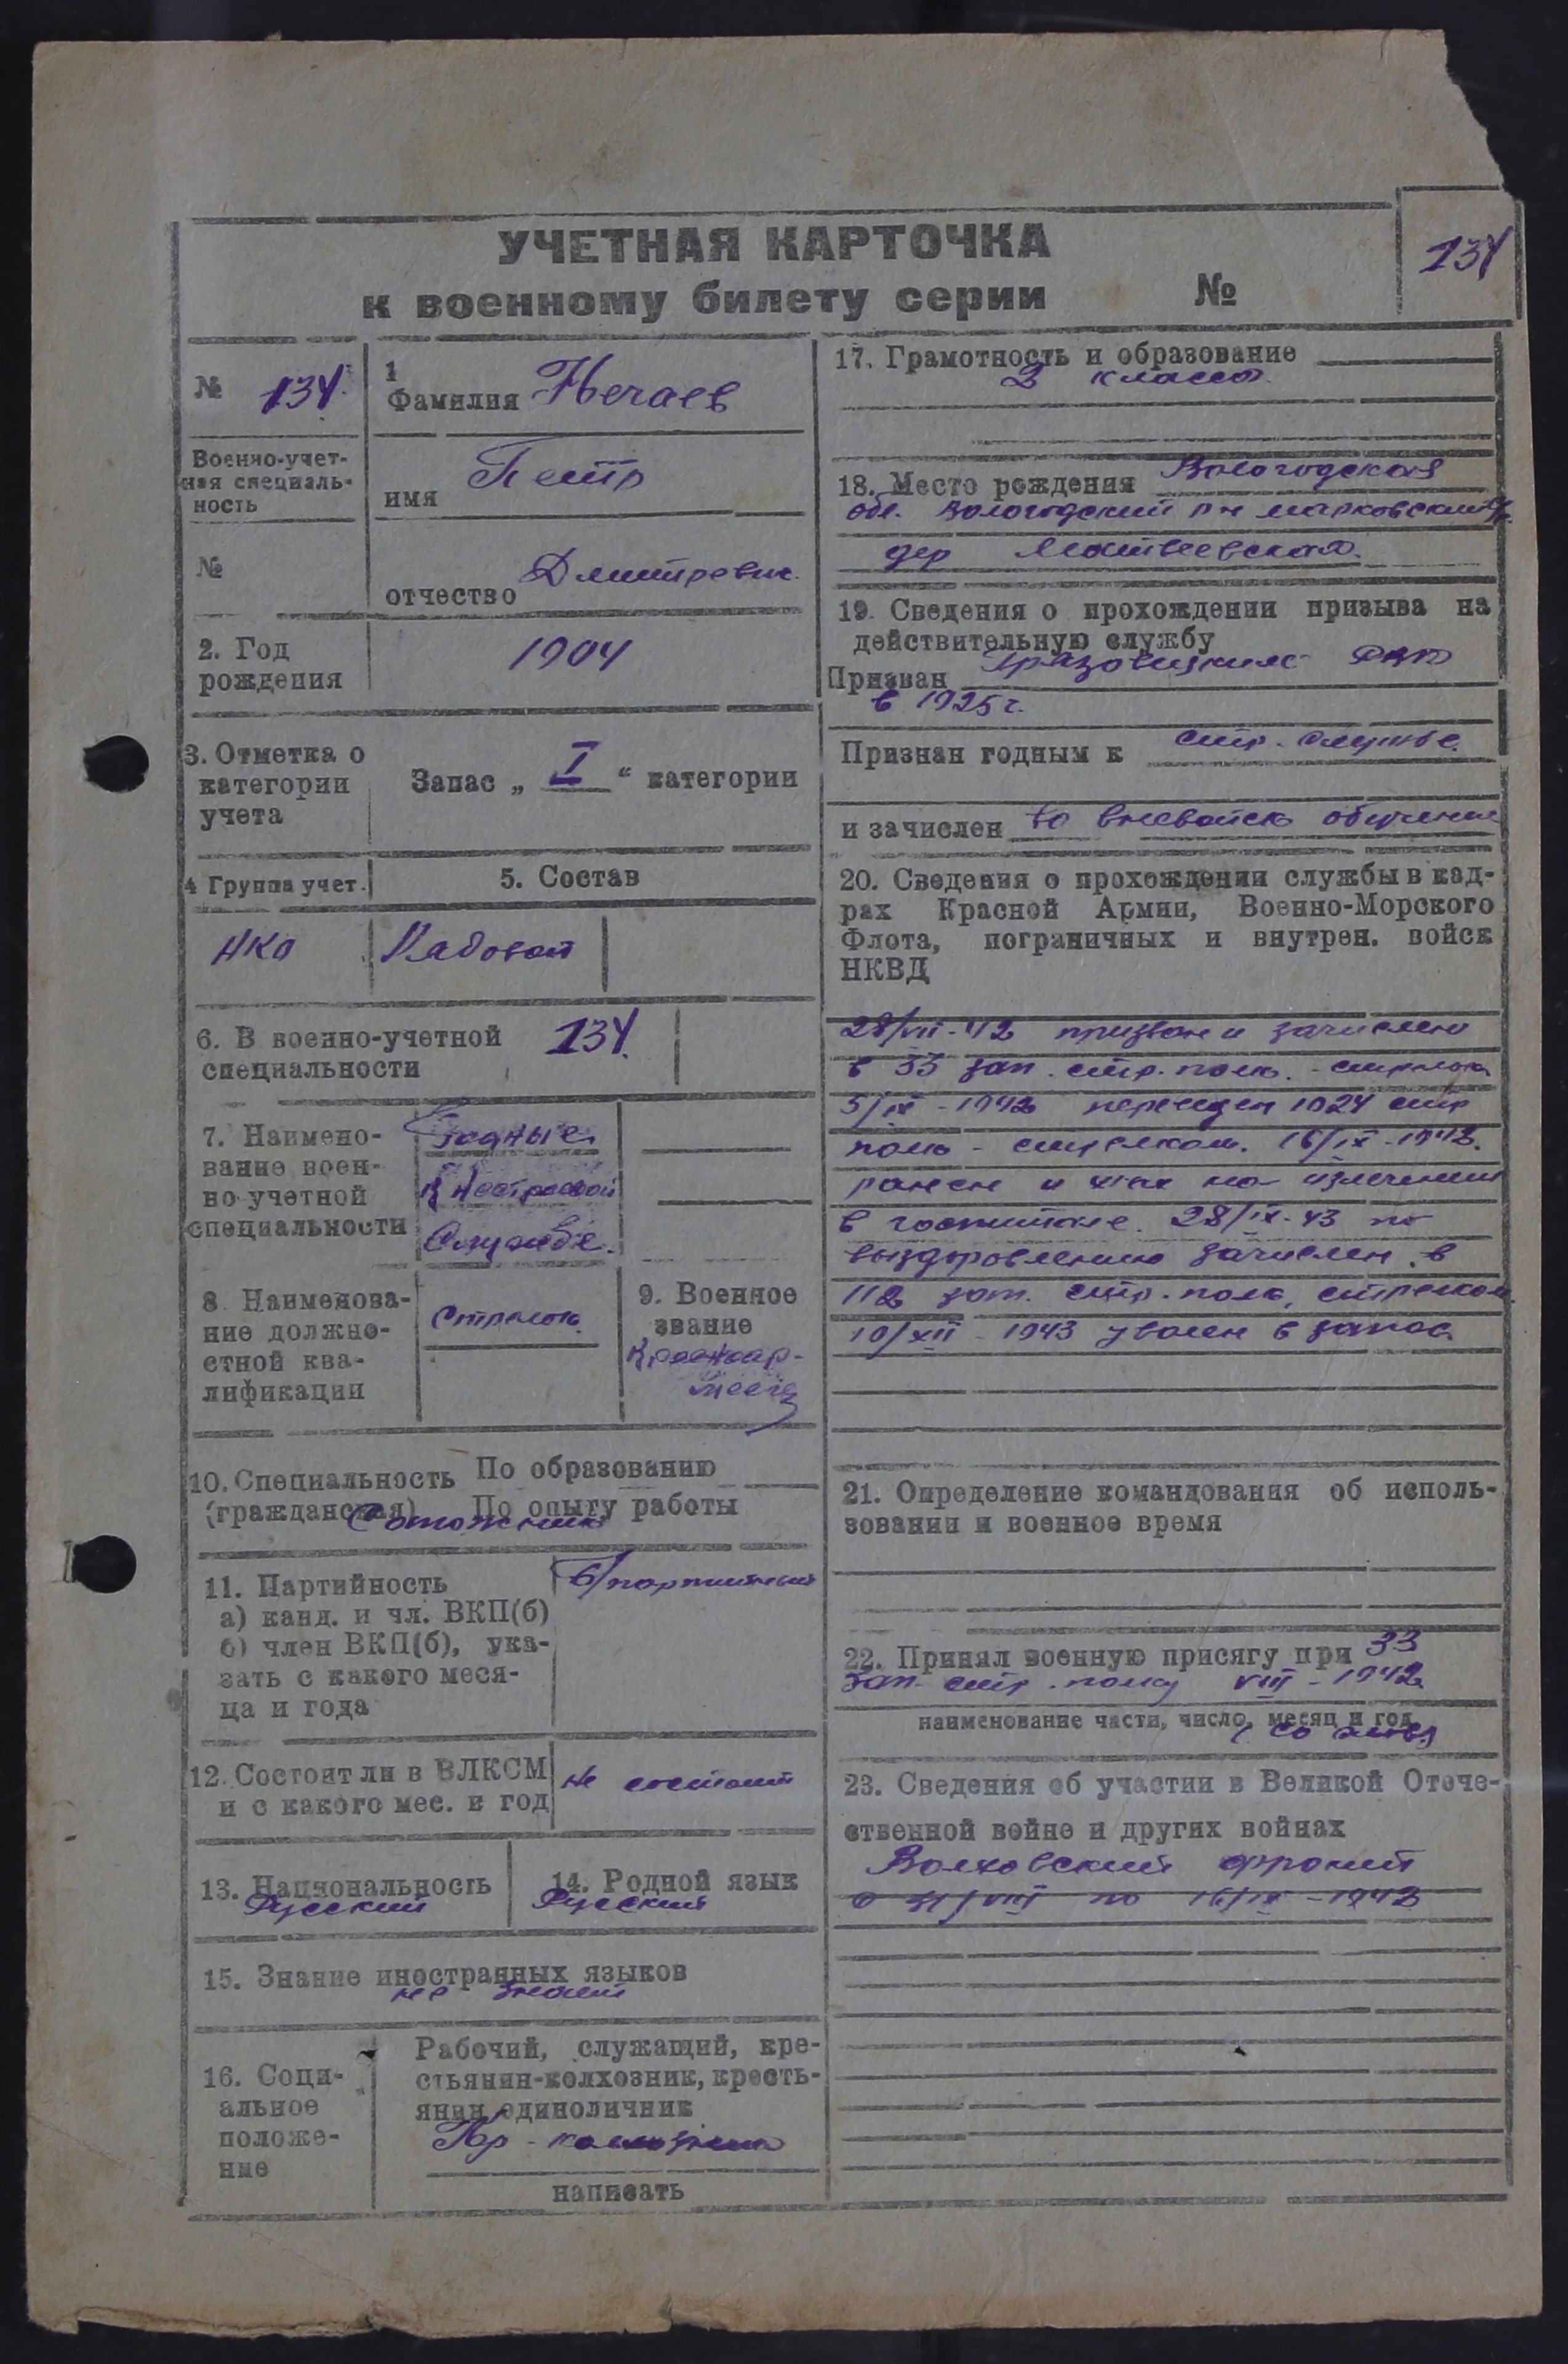 УЧЕТНАЯ КАРТОЧКА
к военному билету серии №
134
№ 134
1
Фамилия Нечаев
Военно-учет-
ная специаль-
ность
имя Петр
№
отчество Дмитревич
2. Год
рождения
1904
3. Отметка о
категории
учета
Запас „ I “ категории
4 Группа учет.
5. Состав
НКО
Рядовой
6. В военно-учетной
специальности
134.
7. Наимено-
вание воен-
но-учетной
специальности
Годные
к нестроевой
Службе.
8. Наименова-
ние должно-
стной ква-
лификации
Стрелок.
9. Военное
звание
Красноар-
меец
10. Специальность По образованию
(гражданская) По опыту работы
11. Партийность
а) канд. и чл. ВКП(б)
б) член ВКП(б), ука-
зать с какого меся-
ца и года
б/партийный
12. Состоит ли в ВЛКСМ
и с какого мес. и год
не состоит
13. Национальность
Русский
14. Родной язык
Русский
15. Знание иностранных языков
не знает
16. Соци-
альное
положе-
ние
Рабочий, служащий, кре-
стьянин-колхозник, кресть-
янин единоличник
Кр - колхозник
написать
17. Грамотность и образование
2 класса.
18. Место рождения Вологодская
обл. Вологодский р-н Марковский с/с.
дер Матвеевская.
19. Сведения о прохождении призыва на
действительную службу
Призван Грязовецким РВК
в 1925 г.
Признан годным к стр. службе.
и зачислен во вневойск обучение
20. Сведения о прохождении службы в кад-
рах Красной Армии, Военно-Морского
Флота, пограничных и внутрен. войск
НКВД
28/VII-42 призван и зачислен
в 33 зап. стр. полк. - стрелок
5/IX - 1942 переведен 1024 стр
полк - стрелком. 16/IX - 1942.
ранен и на излечении
в госпитале. 28/IX-43 по
выздоровлению зачислен в
112 зап. стр. полк, стрелком
10/XII - 1943 уволен в запас.
21. Определение командования об исполь-
зовании и военное время
22. Принял военную присягу при 33
зап. стр. полку VIII - 1942
наименование части, число, месяц и год
(со слов)
23. Сведения об участии в Великой Отече-
ственной войне и других войнах
Волховский фронт
с VIII по 16/IX - 1942